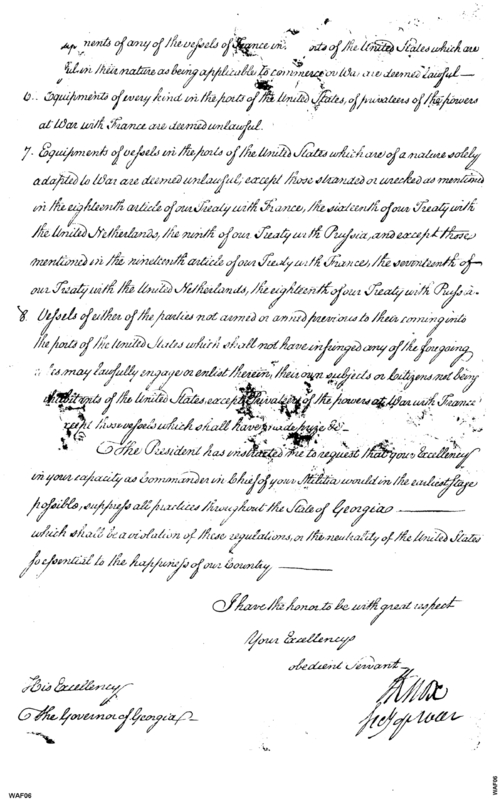 nents of any of the vessels of France in orts of the United States which are
in their nature as being applicable to commerce or War are deemed lawful —
6.. Equipments of every kind in the ports of the United States, of privateers of the powers
at War with France are deemed unlawful.
7. Equipments of vessels in the ports of the United States which are of a nature solely
adapted to War are deemed unlawful, except those stranded or wrecked as mentioned
in the eighteenth article of our Treaty with France, the sixteenth of our Treaty with
the United Netherlands, the ninth of our Treaty with Prussia, and except those
mentioned in the nineteenth article of our Treaty with France, the seventeenth of
our Treaty with the United Netherlands, the eighteenth of our Treaty with Prussia.
8. Vessels of either of the parties not armed or armed previous to their coming into
the ports of the United States which shall not have infringed any of the foregoing
es may lawfully engage or enlist therein, their own subjects or Citizens not being
inhabitants of the United States except Privateers of the powers at War with France
cept those vessels which shall have made prize &c
The President has instructed me to request that your Excellency
in your capacity as Commander in Chief of your Militia would in the earliest stage
possible, suppress all practices throughout the State of Georgia —
which shall be a violation of these regulations, or the neutrality of the United States
so essential to the happiness of our Country —
I have the honor to be with great respect
Your Excellencys
obedient Servant
H Knox
Secy of War
His Excellency
The Governor of Georgia
WAF06
WAF06